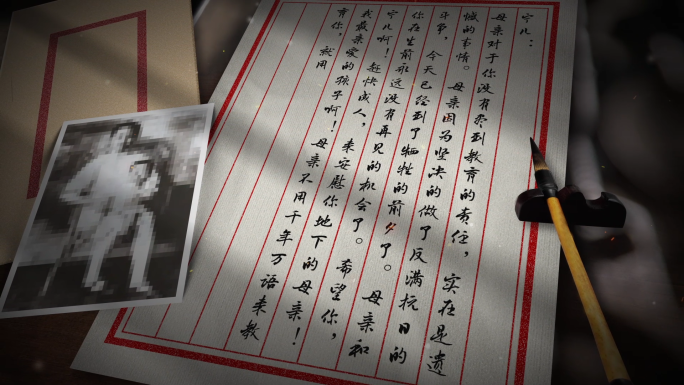 宁儿：
母亲对于你没有尽到教育的责任，实在是遗
憾的事情。母亲因为坚决的做了反满抗日的
斗争，今天已经到了牺牲的前夕了。母亲和
你在生前永远没有再见的机会了。希望你，
宁儿啊！赶快成人，来安慰你地下的母亲！
我最亲爱的孩子啊！母亲不用千年万语来教
育你，就用